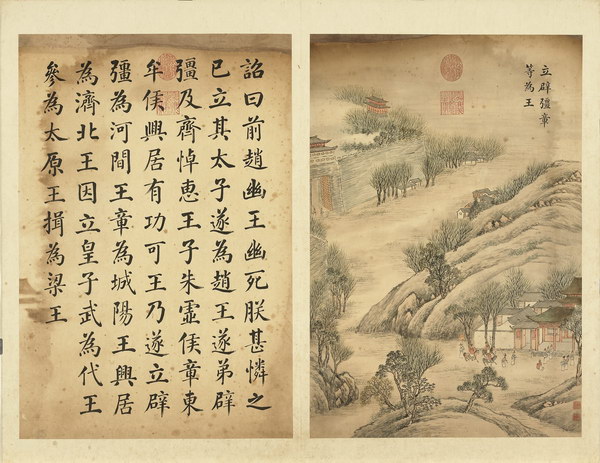 立辟彊章
等為王
詔曰前趙幽王幽死朕甚憐之
已立其太子遂為趙王遂弟辟
彊及齊悼惠王子朱虛侯章東
牟侯興居有功可王乃遂立辟
彊為河間王章為城陽王興居
為濟北王因立皇子武為代王
參為太原王揖為梁王